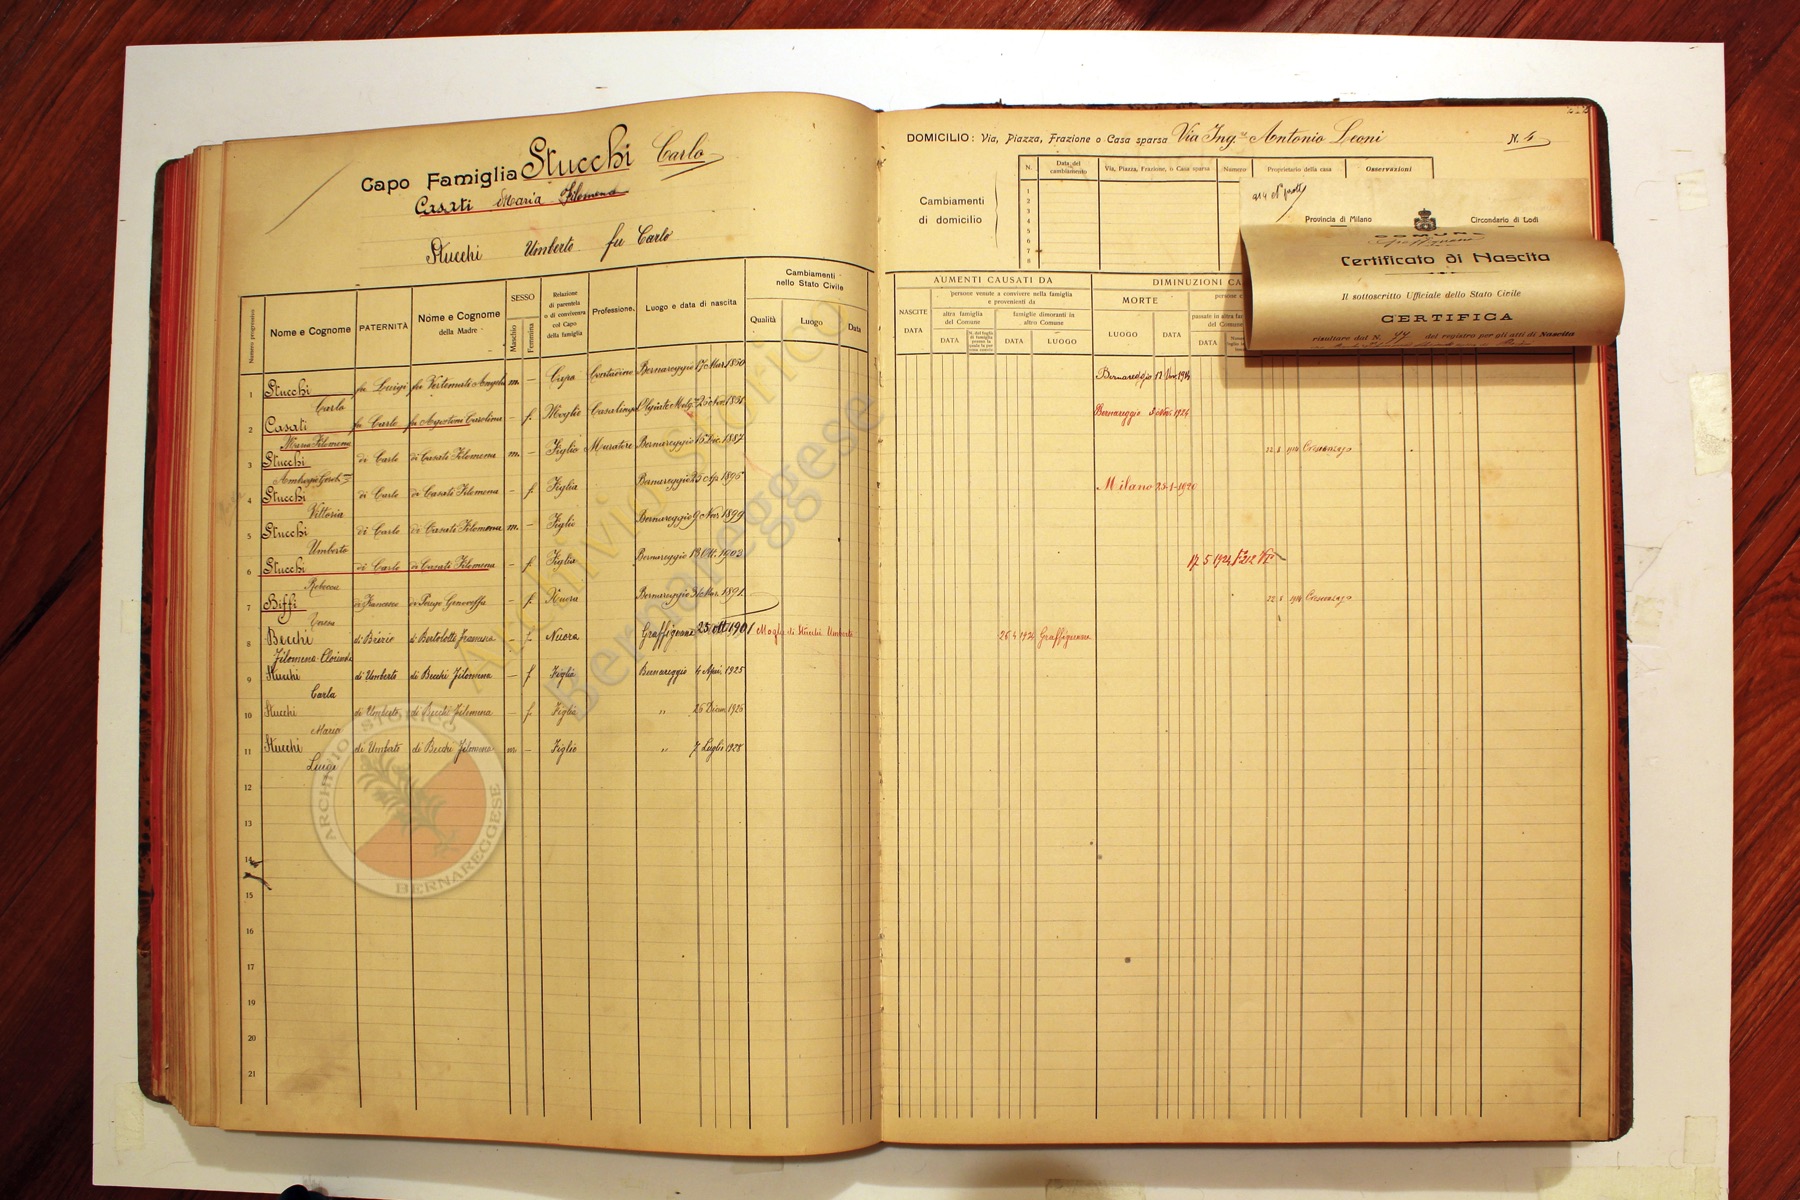 Capo Famiglia Stucchi Carlo
Casati Maria Filomena
Stucchi Umberto fu Carlo
Numero progressivo
Nome e Cognome
PATERNITÀ
Nome e Cognome
della Madre
SESSO
Maschio
Femmina
Relazione
di parentela
o di convivenza
col Capo
della famiglia
Professione
Luogo e data di nascita
Cambiamenti
nello Stato Civile
Qualità
Luogo
Data
1 Stucchi fu Luigi fu Vertemati Angela m. — Capo Contadino Bernareggio 17 Mar. 1850
Carlo
2 Casati fu Carlo fu Agostoni Carolina — f. Moglie Casalinga
Maria Filomena
3 Stucchi di Carlo di Casati Filomena m. — Figlio Muratore Bernareggio 15 Dic. 1887
4 Stucchi di Carlo di Casati Filomena — f. Figlia Bernareggio 1895
Vittoria
5 Stucchi di Carlo di Casati Filomena m. — Figlio Bernareggio 9 Nov. 1899
Umberto
6 Stucchi di Carlo di Casati Filomena — f. Figlia Bernareggio 13 Ott. 1902
Rebecca
7 Biffi di Francesco di Perego Genoveffa — f. Nuora Bernareggio Mar. 1891
Teresa
8 Becchi di Bertolotti Francesca — f. Nuora Graffignana 25 Ott. 1901 Moglie di Stucchi Umberto
Filomena Clorinda
9 Stucchi di Umberto di Becchi Filomena — f. Figlia Bernareggio 4 Apri. 1925
Carla
10 Stucchi di Umberto di Becchi Filomena — f. Figlia „ 26 Dicem. 1926
Maria
11 Stucchi di Umberto di Becchi Filomena m — Figlio „ 7 Luglio 1928
Luigi
12
13
14
15
16
17
18
19
20
21
DOMICILIO: Via, Piazza, Frazione o Casa sparsa Via Ing.re Antonio Leoni N. 4
Cambiamenti
di domicilio
N.
Data del
cambiamento
Via, Piazza, Frazione, o Casa sparsa
Numero
Proprietario della casa
Osservazioni
1
2
3
4
5
6
7
8
AUMENTI CAUSATI DA
NASCITE
DATA
persone venute a convivere nella famiglia
e provenienti da
altra famiglia
del Comune
DATA
famiglie dimoranti in
altro Comune
DATA
LUOGO
DIMINUZIONI CA
MORTE
LUOGO
DATA
passate in altra fa
del Comune
DATA
Bernareggio 17 Nov. 1914
Bernareggio 1924
22 5 1914 Crescenzago
Milano 28-1-1920
17 5 1924
22 5 1914 Crescenzago
26 4 1924 Graffignana
Provincia di Milano
Circondario di Lodi
COMUNE
Graffignana
Certificato di Nascita
Il sottoscritto Ufficiale dello Stato Civile
CERTIFICA
risultare dal N. 77 del registro per gli atti di Nascita
Archivio Storico
Bernareggese
ARCHIVIO STORICO
BERNAREGGESE